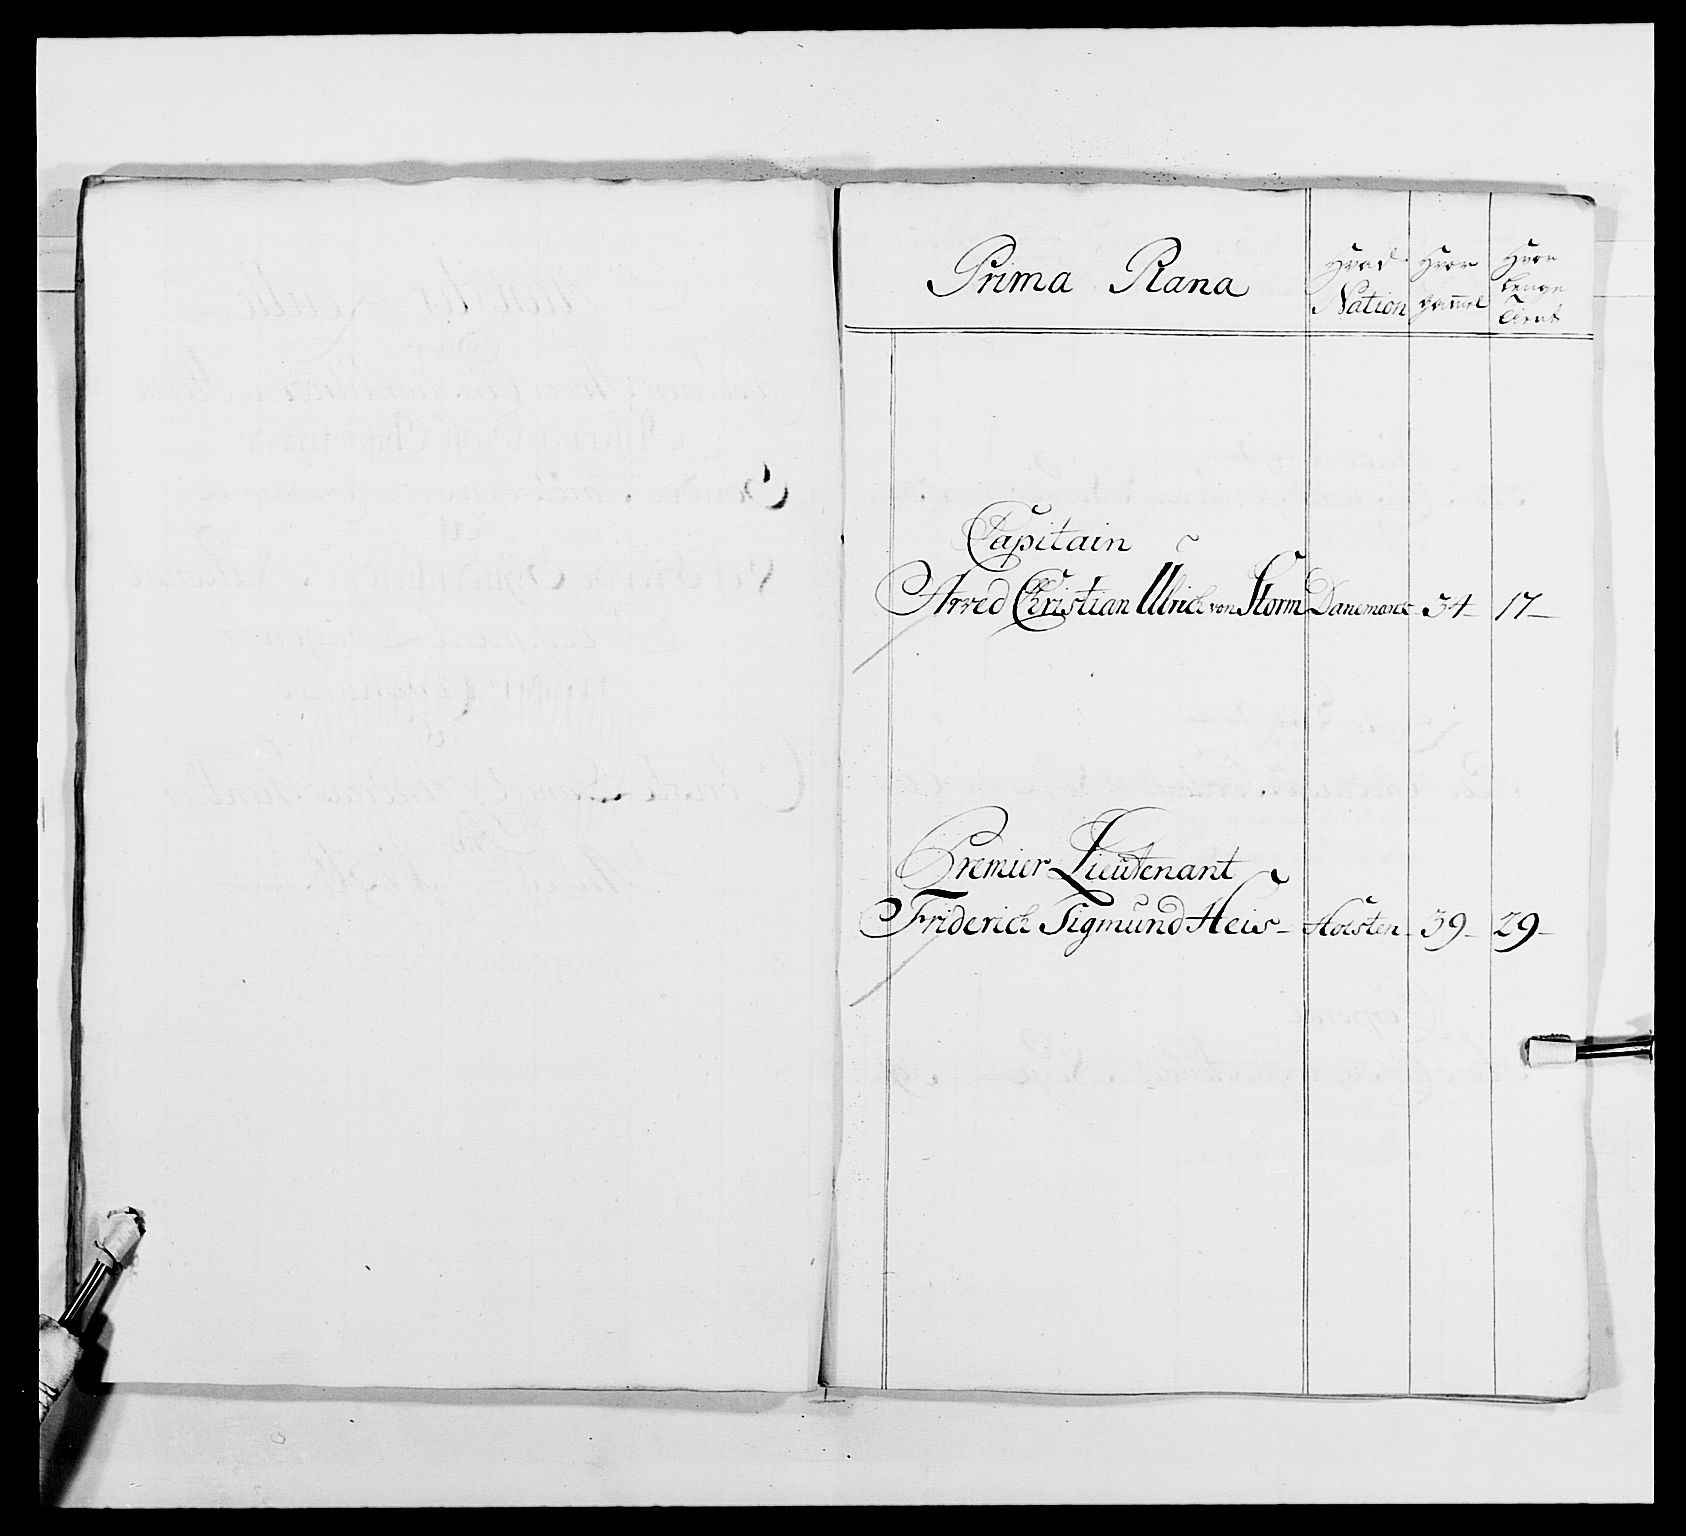 Prima Plana
Hvad Nation
Hvor gammel
Hvor lenge tient
Capitain
Arved Christian Ulrich von Storm Danemarck 34 17
Premier Lieutenant
Friderich Sigmund Heis Holsten 39 29